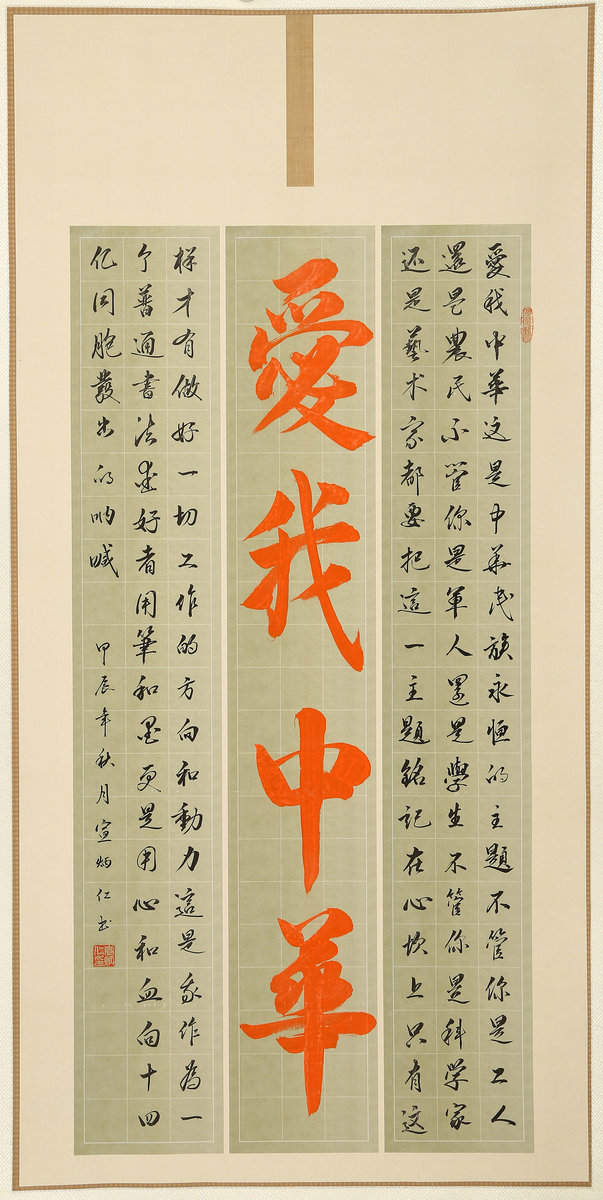 愛我中華这是中华民族永恒的主題不管你是工人
還是農民不管你是軍人還是學生不管你是科学家
还是藝术家都要把這一主題銘記在心坎上只有这
愛我中華
样才有做好一切工作的方向和動力這是我作為一
个普通書法愛好者用筆和墨更是用心和血向十四
亿同胞發出的呐喊
甲辰年秋月宣炳仁书